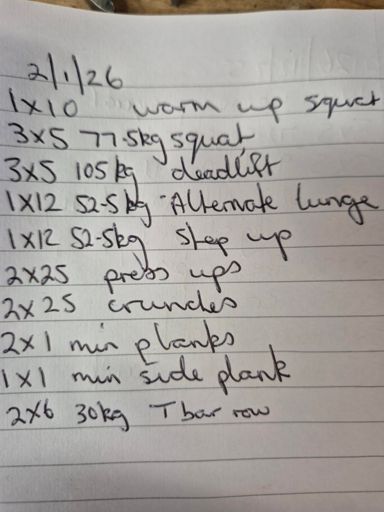 2/1/26
1x10 warm up squat
3x5 77.5kg squat
3x5 105kg deadlift
1x12 52.5kg Alternate lunge
1x12 52.5kg Step up
2x25 press ups
2x25 crunches
2x1 min planks
1x1 min side plank
2x6 30kg T bar row